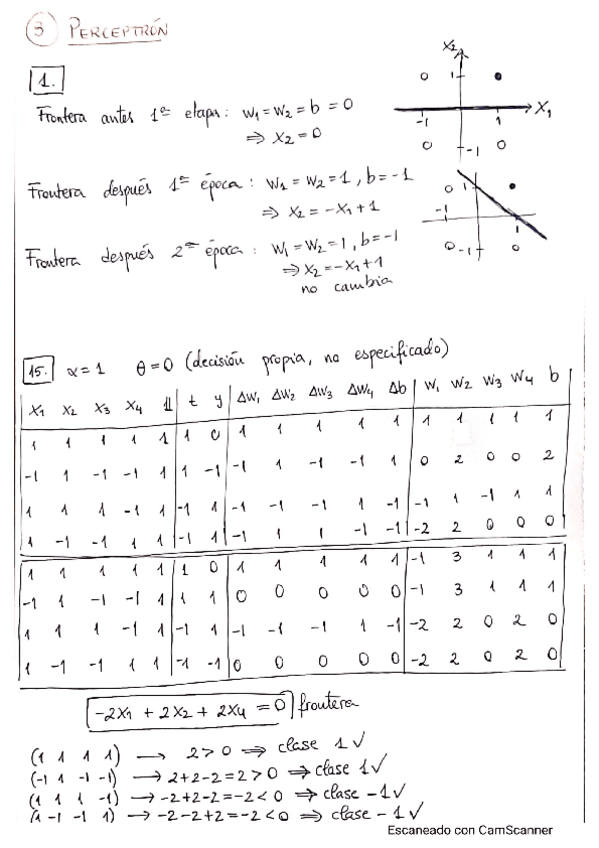 3 PERCEPTRÓN
1.
Frontera antes 1ª etapa: w₁ = w₂ = b = 0
⇒ x₂ = 0
x₂
1
x₁
-1 1
-1
Frontera después 1ª época: w₁ = w₂ = 1, b = -1
⇒ x₂ = -x₁ + 1
1
-1
1
-1
Frontera después 2ª época: w₁ = w₂ = 1, b = -1
⇒ x₂ = -x₁ + 1
no cambia
15. α = 1 θ = 0 (decisión propia, no especificado)
x₁ x₂ x₃ x₄ 1 t y Δw₁ Δw₂ Δw₃ Δw₄ Δb w₁ w₂ w₃ w₄ b
1 1 1 1 1 1 0 1 1 1 1 1 1 1 1 1 1
-1 1 -1 -1 1 1 -1 -1 1 -1 -1 1 0 2 0 0 2
1 1 1 -1 1 -1 1 -1 -1 -1 1 -1 -1 1 -1 1 1
1 -1 -1 1 1 -1 1 -1 1 1 -1 -1 -2 2 0 0 0
1 1 1 1 1 1 0 1 1 1 1 1 -1 3 1 1 1
-1 1 -1 -1 1 1 1 0 0 0 0 0 -1 3 1 1 1
1 1 1 -1 1 -1 1 -1 -1 -1 1 -1 -2 2 0 2 0
1 -1 -1 1 1 -1 -1 0 0 0 0 0 -2 2 0 2 0
-2x₁ + 2x₂ + 2x₄ = 0 frontera
(1 1 1 1) → 2 > 0 ⇒ clase 1 ✓
(-1 1 -1 -1) → 2+2-2 = 2 > 0 ⇒ clase 1 ✓
(1 1 1 -1) → -2+2-2 = -2 < 0 ⇒ clase -1 ✓
(1 -1 -1 1) → -2-2+2 = -2 < 0 ⇒ clase -1 ✓
Escaneado con CamScanner